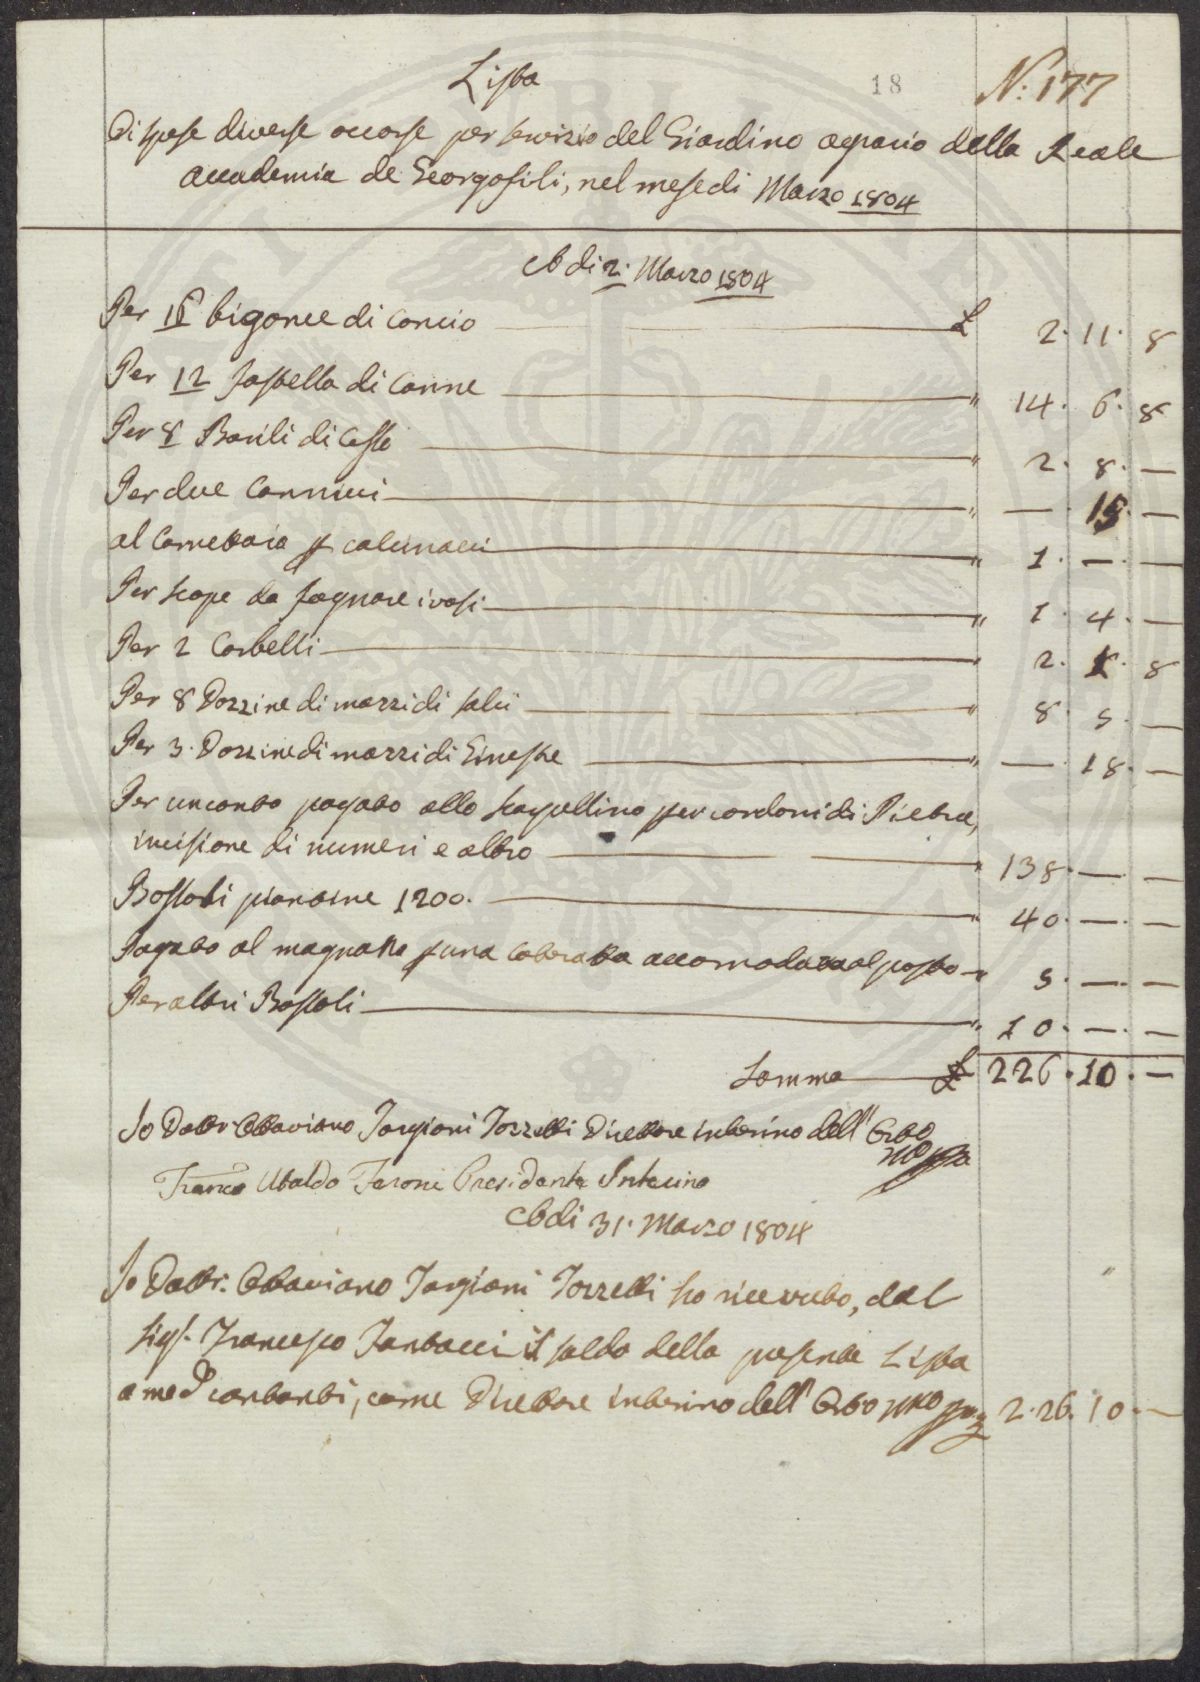 Lista
18
N: 177
Di spese diverse occorse per servizio del Giardino agrario della Reale
Accademia de Georgofili, nel mese di Marzo 1804
A di 2. Marzo 1804
Per bigonce di concio £ 2. 11. 8
Per 12 fastella di Canne " 14. 6. 8
Per 8 Barili di Cesso " 2. 8. —
Per due Cannicci " — 15. —
al Carrettaio p calcinacci " 1. — —
Per scope da fognare i vasi " 1. 4. —
Per 2 Corbelli " 2. 1. 8
Per 8 Dozzine di mazzi di salci " 8. 5. —
Per 3. Dozzine di mazzi di Ginestre " — 18. —
Per un conto pagato allo Scarpellino per cordoni di Pietra,
incisione di numeri e altro " 138. — —
Bossoli piantine 1200. " 40. — —
Pagato al magnano p una cateratta accomodata al posto " 5. — —
Per altri Bossoli " 10. — —
Somma £ 226. 10. —
Io Dottr Ottaviano Targioni Tozzetti Direttore interino dell' Orto
mo ppa
Franco Ubaldo Feroni Presidente Interino
A di 31. Marzo 1804
Io Dottr. Ottaviano Targioni Tozzetti ho ricevuto, dal
Sigr. Francesco Tartacci il saldo della presente Lista
a me contanti, come Direttore interino dell' Orto mo ppa 2.26. 10. —